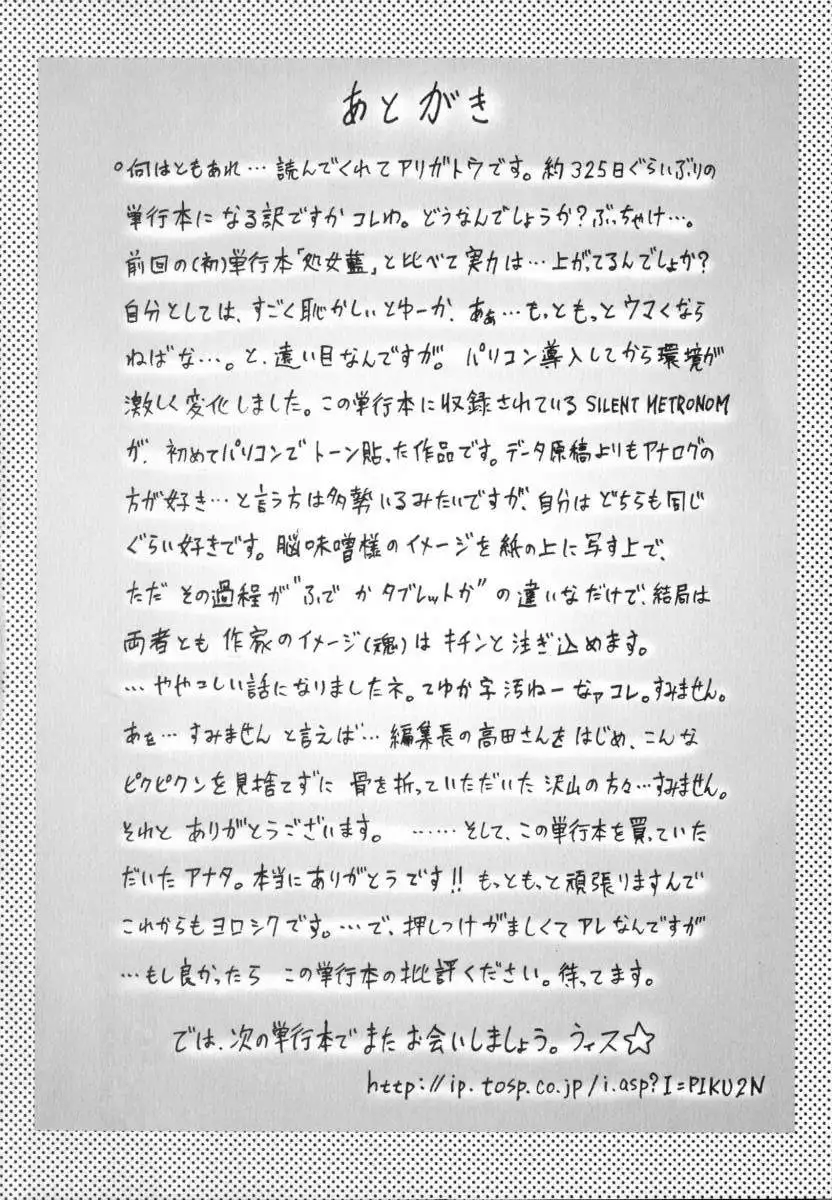 あとがき
。何はともあれ…読んでくれてアリガトウです。約325日ぐらいぶりの
単行本になる訳ですかコレわ。どうなんでしょうか?ぶっちゃけ…。
前回の(初)単行本「処女藍」と比べて実力は…上がってるんでしょか?
自分としては、すごく恥かしいとゆーか、あぁ…もっともっとウマくなら
ねばな…。と、遠い目なんですが。パソコン導入してから環境が
激しく変化しました。この単行本に収録されているSILENT METRONOM
が、初めてパソコンでトーン貼った作品です。データ原稿よりもアナログの
方が好き…と言う方は多勢いるみたいですが、自分はどちらも同じ
ぐらい好きです。脳味噌様のイメージを紙の上に写す上で、
ただその過程が"ふでかタブレットか"の違いなだけで、結局は
両者とも作家のイメージ(魂)はキチンと注ぎ込めます。
…ややこしい話になりましたネ。てゆか字汚ねーなァコレ。すみません。
あぁ…すみませんと言えば…編集長の高田さんをはじめ、こんな
ピクピクンを見捨てずに骨を折っていただいた沢山の方々…すみません。
それとありがとうございます。……そして、この単行本を買っていた
だいたアナタ。本当にありがとうです!!もっともっと頑張りますんで
これからもヨロシクです。…で、押しつけがましくてアレなんですが
…もし良かったらこの単行本の批評ください。待ってます。
では、次の単行本でまたお会いしましょう。ウィス☆
http://ip.tosp.co.jp/i.asp?I=PIKU2N